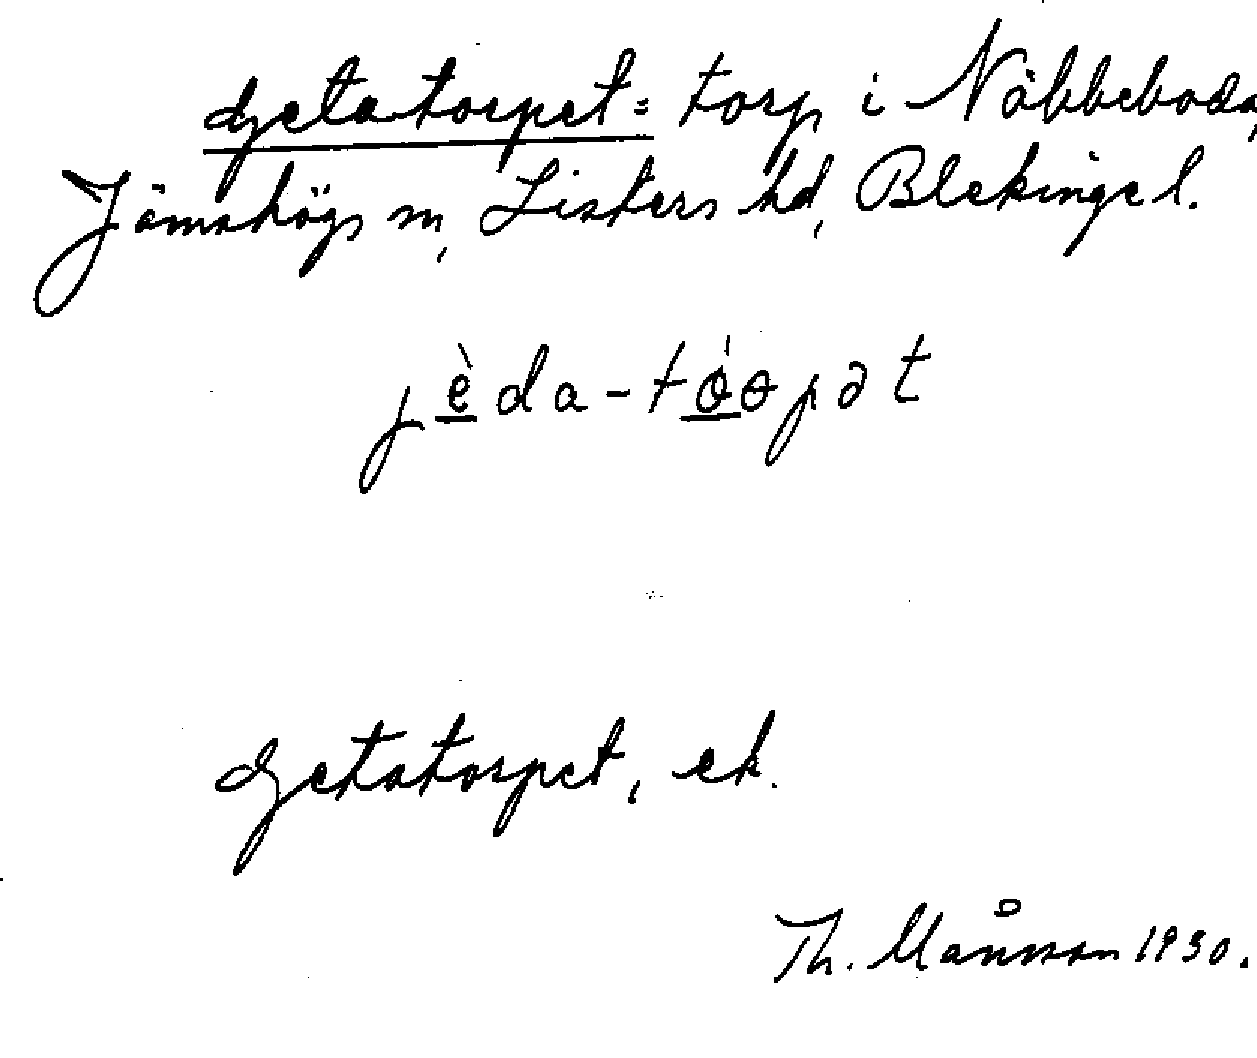 Getatorpet = torp i Näbbeboda,
Jämshögs sn, Listers hd, Blekinge l.
jèda-tóopət
Getatorpet, ek.
Th. Månsson 1930.